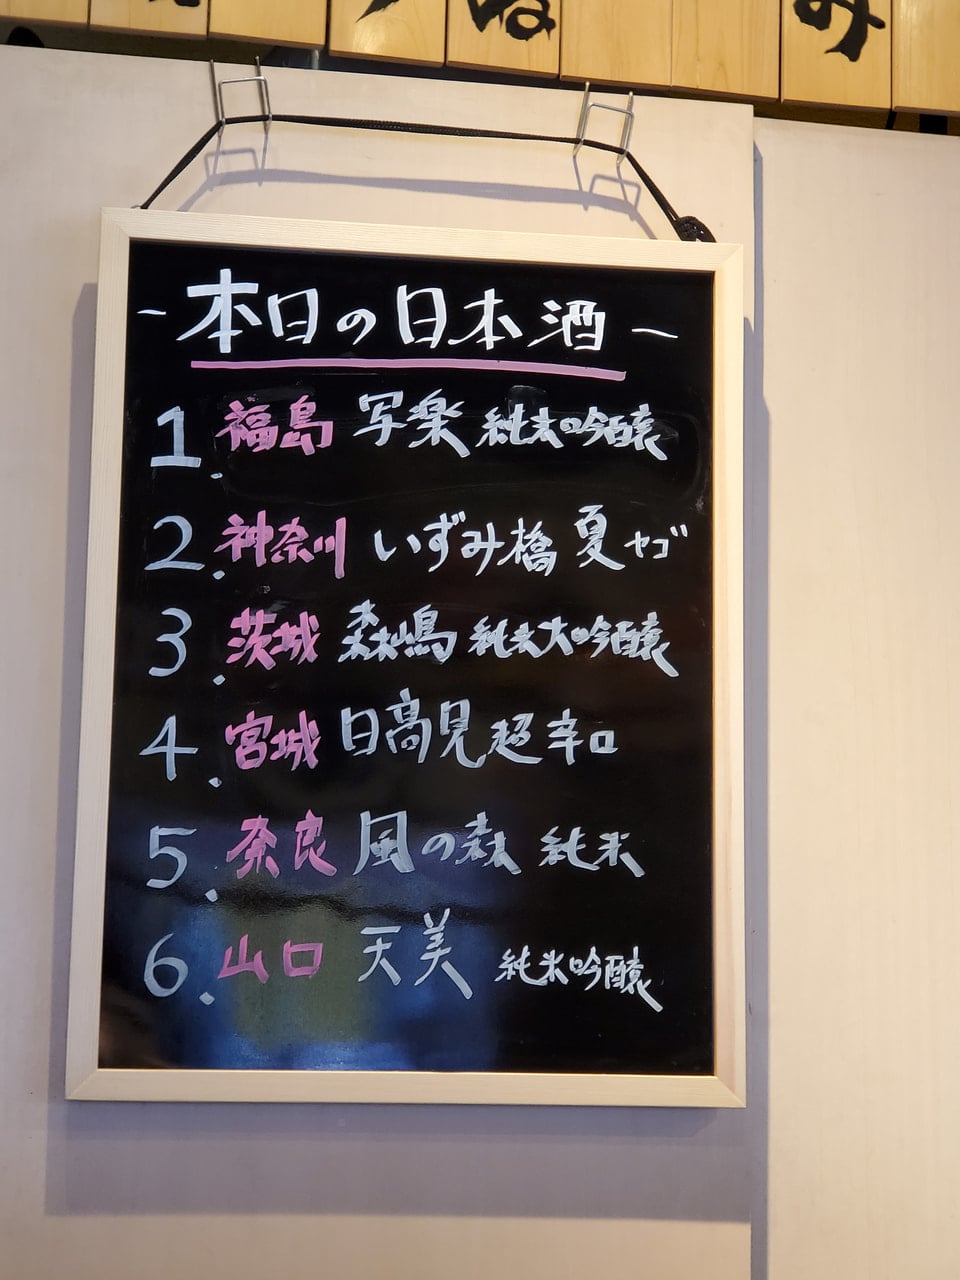 ぬ み
- 本日の日本酒 -
1. 福島 写楽 純米吟醸
2. 神奈川 いずみ橋 夏ヤゴ
3. 茨城 森嶋 純米大吟醸
4. 宮城 日高見 超辛口
5. 奈良 風の森 純米
6. 山口 天美 純米吟醸